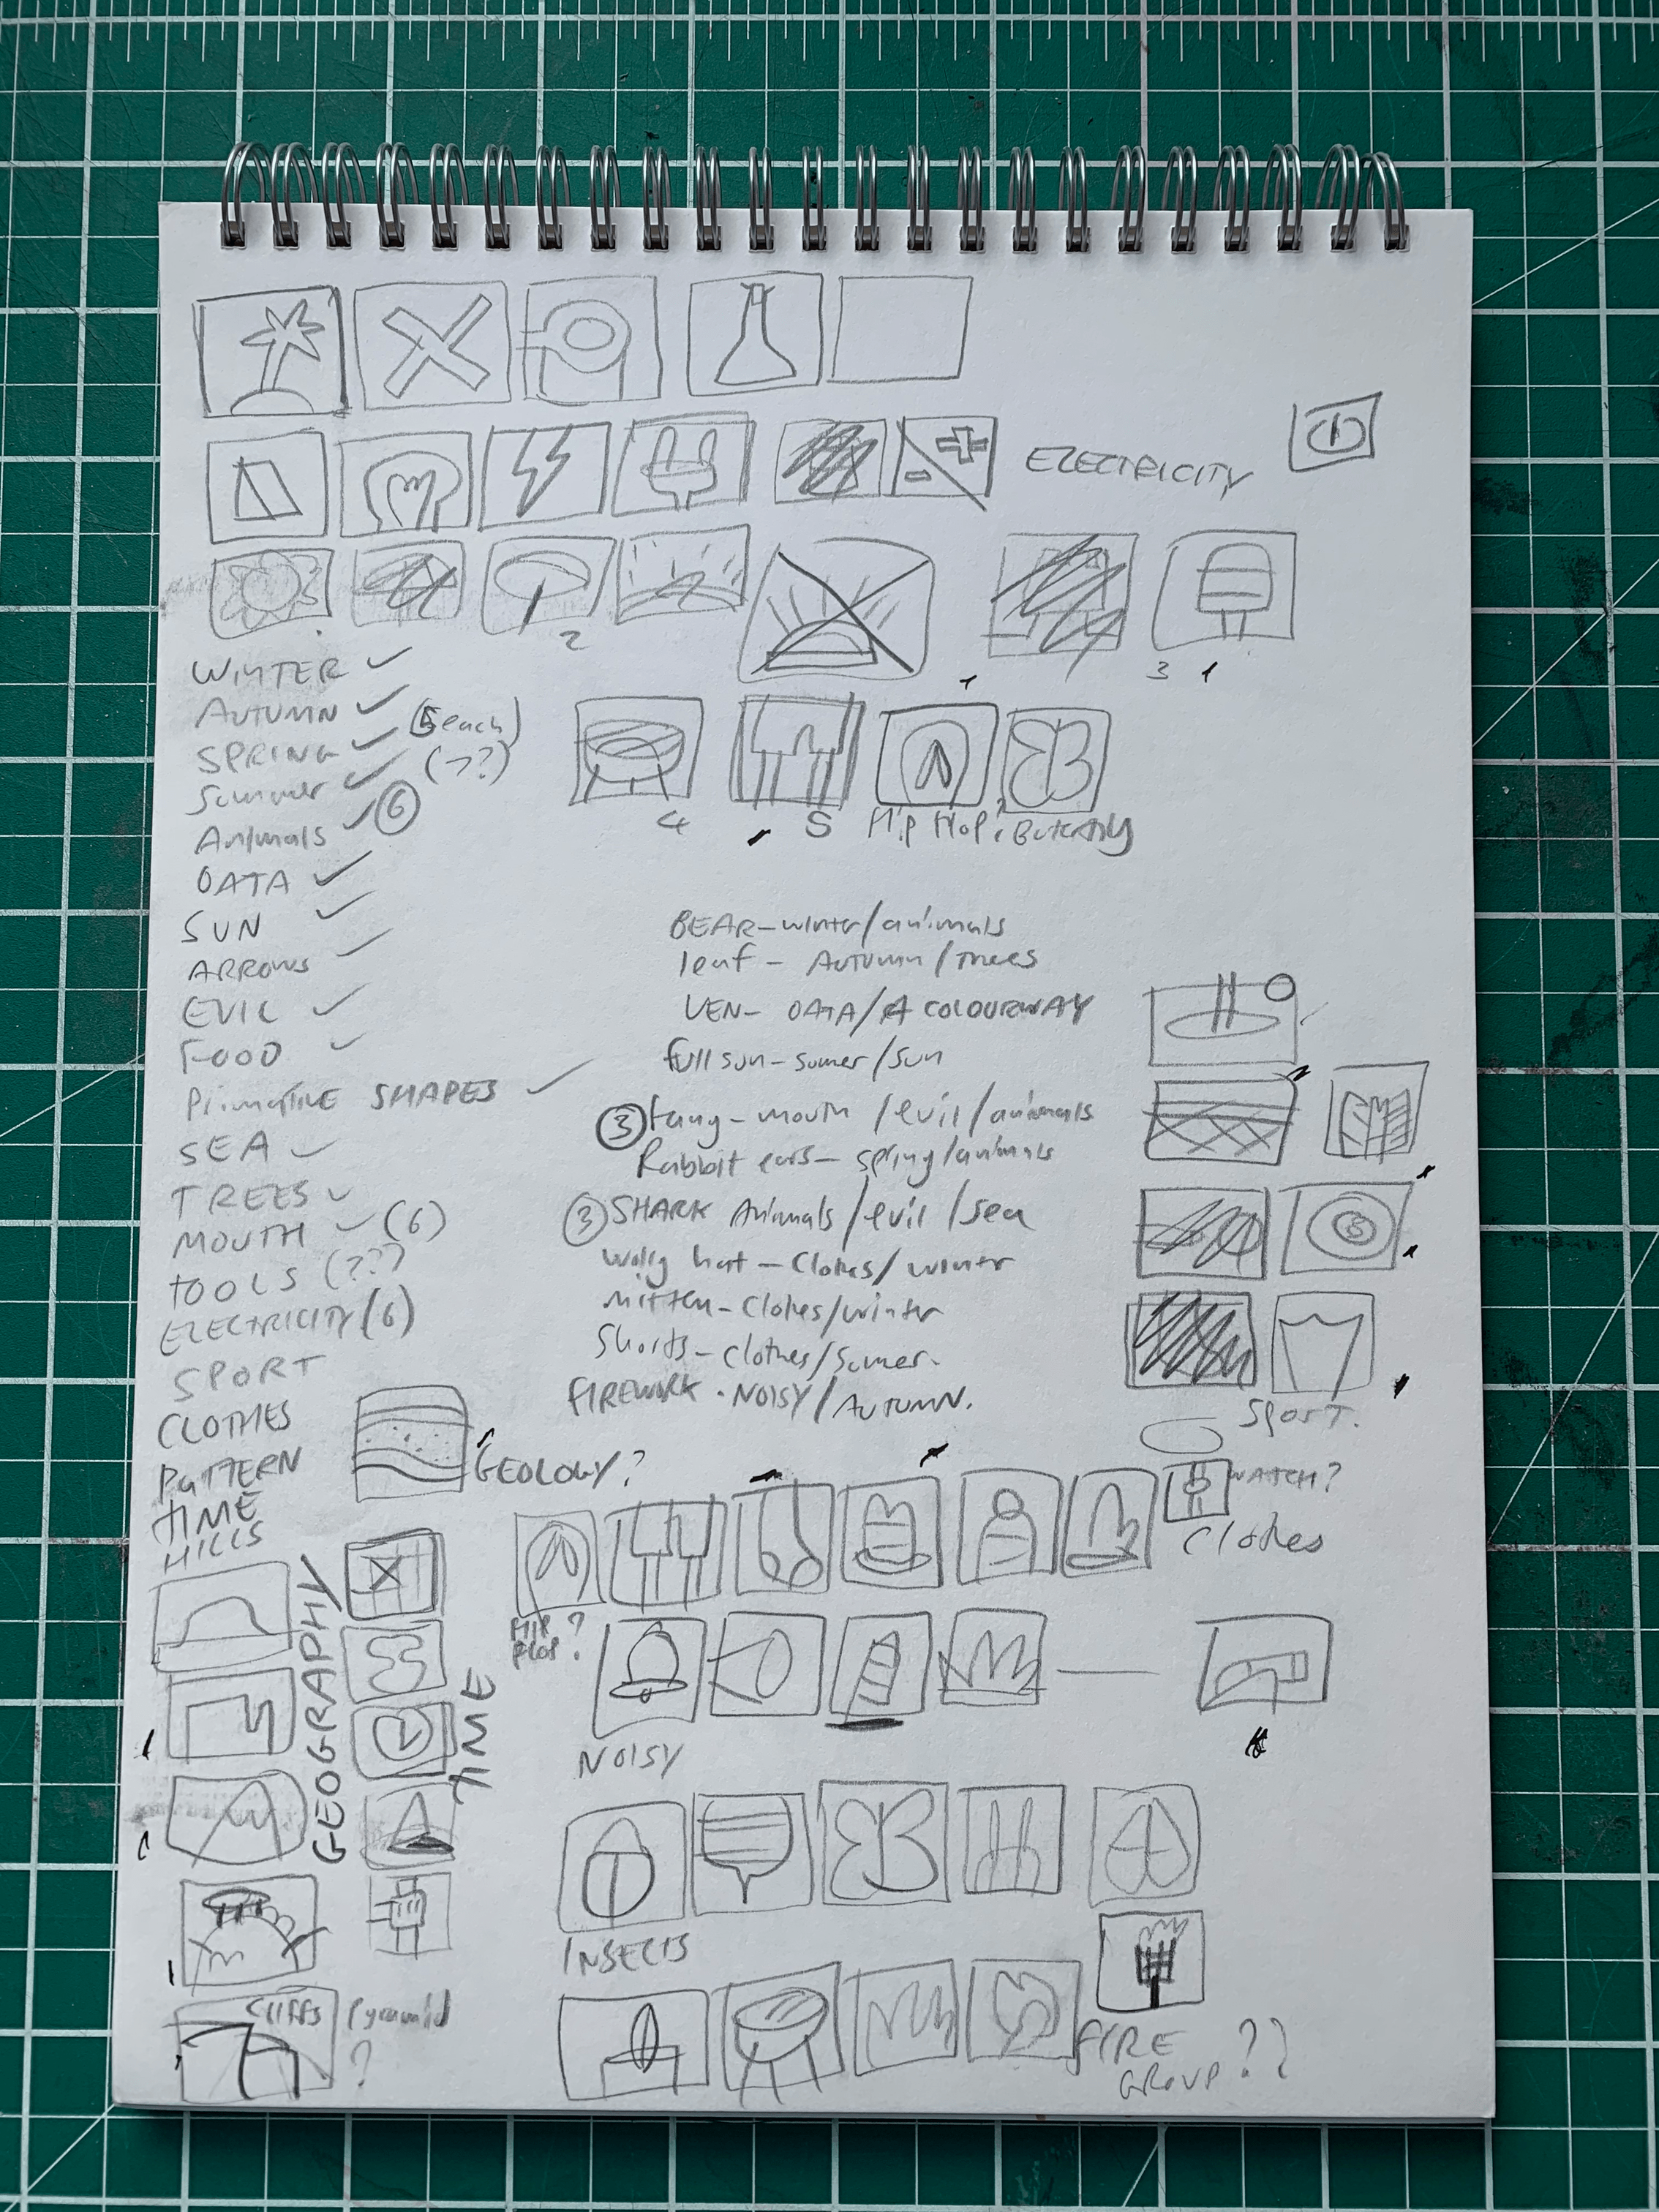 ELECTRICITY
2
3 1
WINTER ✓
AUTUMN ✓
SPRING ✓ (5 each)
Summer ✓ (??)
Animals ✓ 6
DATA ✓
SUN ✓
ARROWS ✓
EVIL ✓
FOOD ✓
PrimatIvE SHAPES ✓
SEA ✓
TREES ✓
MOUTH ✓ (6)
TOOLS (???)
ELECTRICITY (6)
SPORT
CLOTHES
PATTERN
TIME
HILLS
4
5
Flip Flop?
Butterfly
BEAR - winter/animals
leaf - Autumn/Trees
VEN - DATA/A COLOURWAY
full sun - sumer/sun
3 fang - mouth/evil/animals
Rabbit ears - spring/animals
3 SHARK Animals/evil/sea
wolly hat - Clothes/winter
mitten - Clothes/winter
Shorts - clothes/Sumer.
FIREWORK - NOISY/AUTUMN.
SPORT.
GEOLOGY?
WATCH?
Clothes
FLIP FLOP?
GEOGRAPHY
TIME
NOISY
INSECTS
Cliffs
Pyramid
?
FIRE
GROUP??